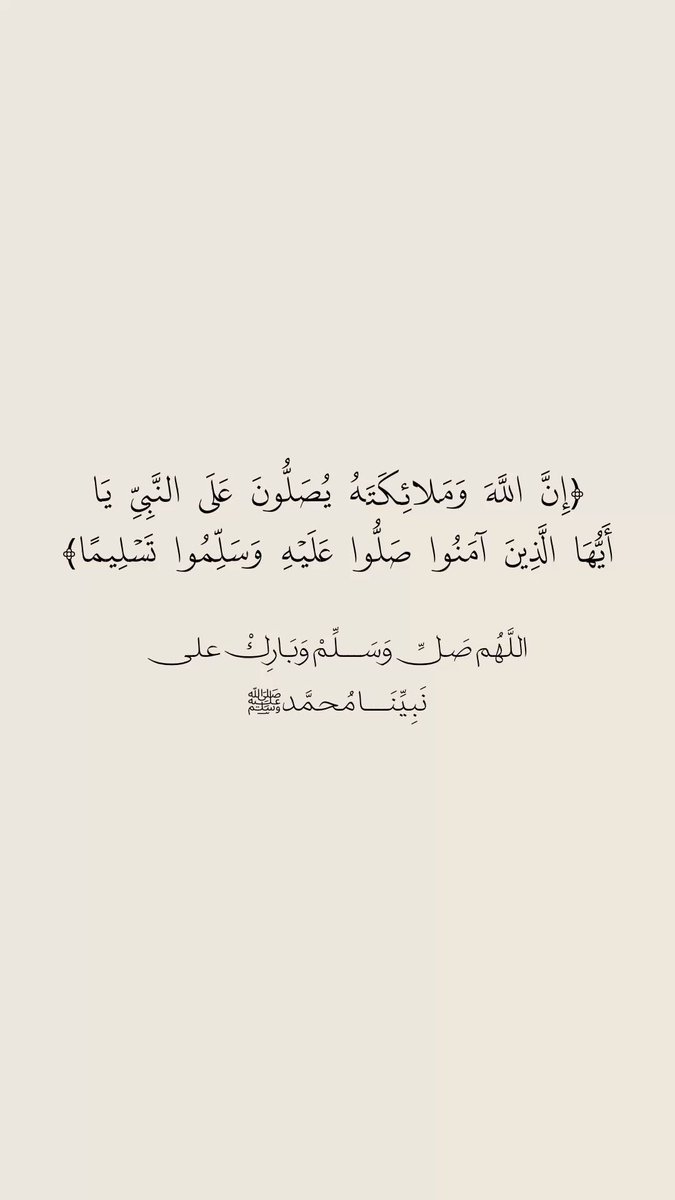 ﴿إِنَّ اللَّهَ وَمَلائِكَتَهُ يُصَلُّونَ عَلَى النَّبِيِّ يَا
أَيُّهَا الَّذِينَ آمَنُوا صَلُّوا عَلَيْهِ وَسَلِّمُوا تَسْلِيمًا﴾
اللَّهُم صَلِّ وَســلِّمْ وَبَارِكْ على
نَبِيِّنَــا مُحمَّد ﷺ